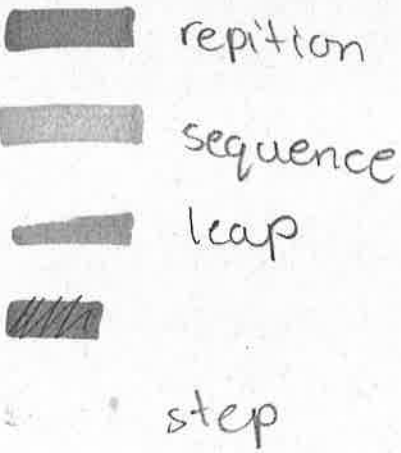 repition
sequence
leap
step